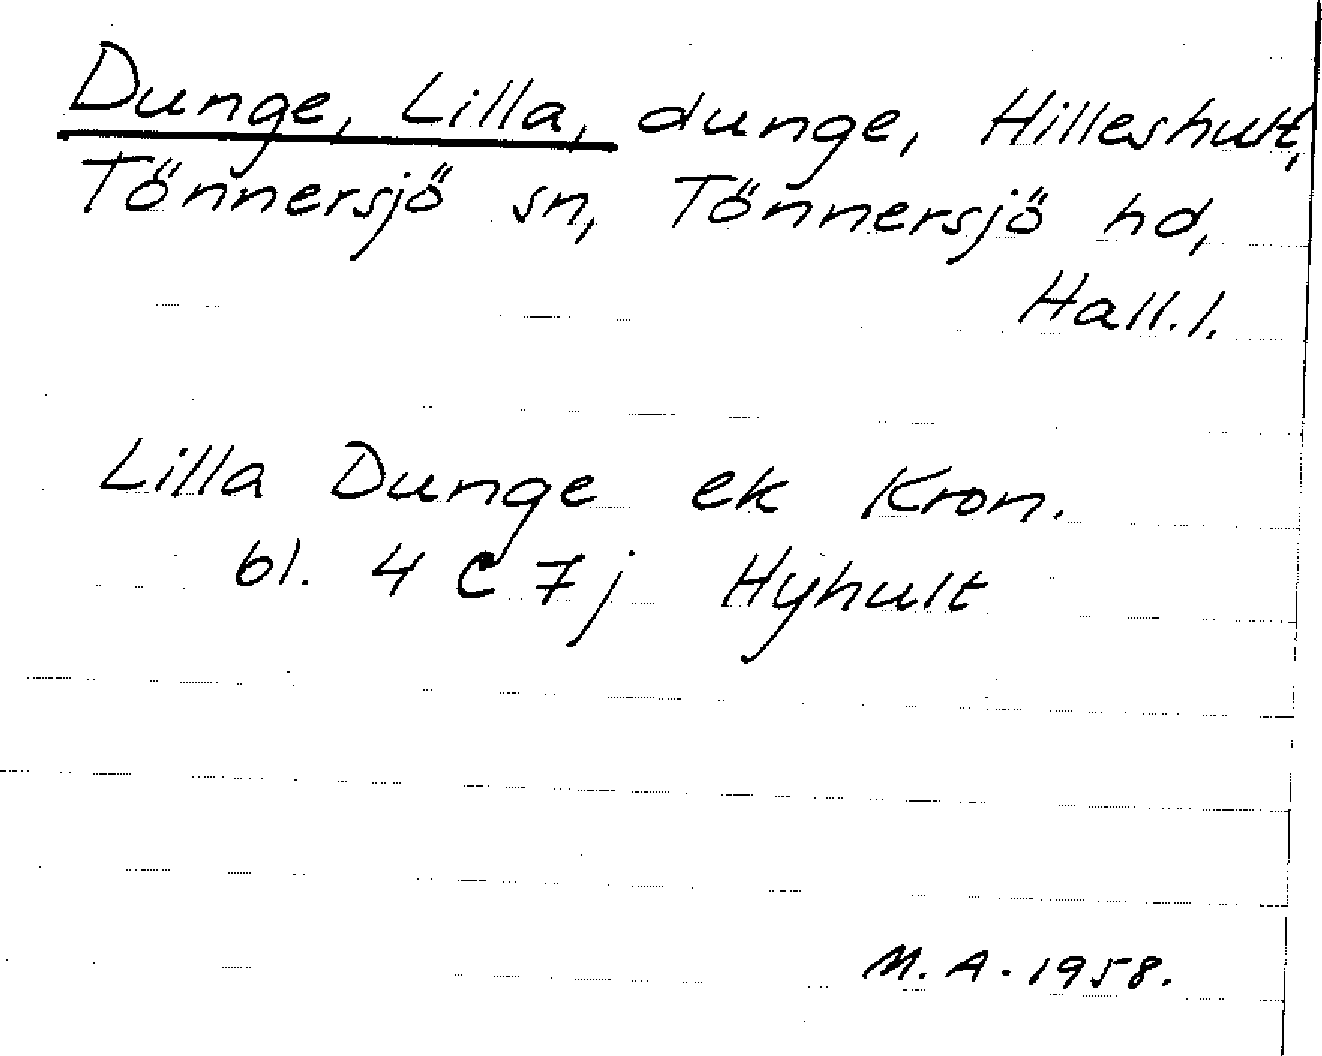 Dunge, Lilla, dunge, Hilleshult,
Tönnersjö sn, Tönnersjö hd,
Hall.l.
Lilla Dunge ek Kron.
bl. 4 C 7j Hyhult
M.A. 1958.